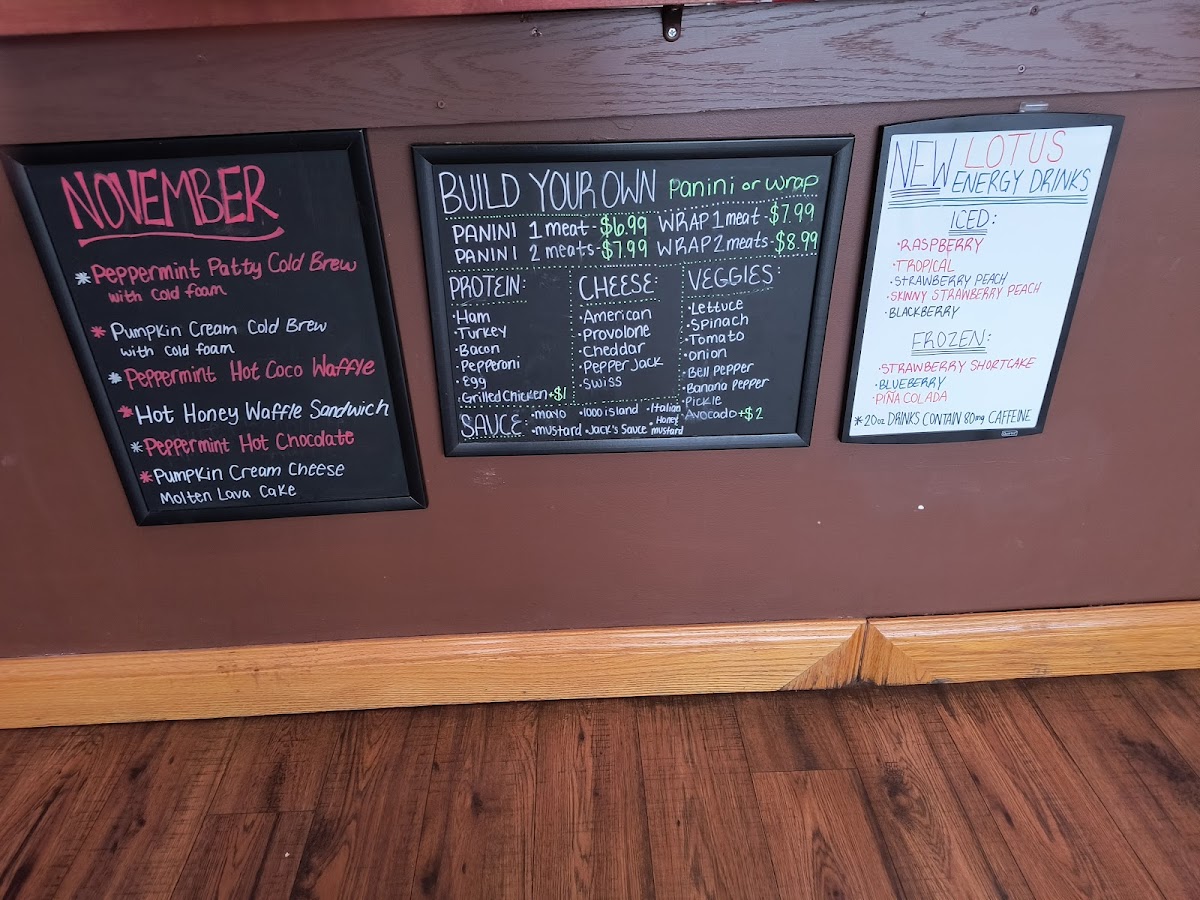 NOVEMBER
*Peppermint Patty Cold Brew
with cold foam
*Pumpkin Cream Cold Brew
with cold foam
*Peppermint Hot Coco Waffle
*Hot Honey Waffle Sandwich
*Peppermint Hot Chocolate
*Pumpkin Cream Cheese
Molten Lava Cake
BUILD YOUR OWN panini or wrap
PANINI 1 meat - $6.99 WRAP 1 meat - $7.99
PANINI 2 meats - $7.99 WRAP 2 meats - $8.99
PROTEIN:
• Ham
• Turkey
• Bacon
• Pepperoni
• Egg
• Grilled Chicken +$1
CHEESE:
• American
• Provolone
• Cheddar
• Pepper Jack
• Swiss
VEGGIES:
• Lettuce
• Spinach
• Tomato
• onion
• Bell pepper
• Banana pepper
• Pickle
• Avocado +$2
SAUCE: • mayo • 1000 island • Italian
• mustard • Jack's Sauce • Honey mustard
NEW LOTUS
ENERGY DRINKS
ICED:
• RASPBERRY
• TROPICAL
• STRAWBERRY PEACH
• SKINNY STRAWBERRY PEACH
• BLACKBERRY
FROZEN:
• STRAWBERRY SHORTCAKE
• BLUEBERRY
• PIÑA COLADA
*20oz DRINKS CONTAIN 80mg CAFFEINE